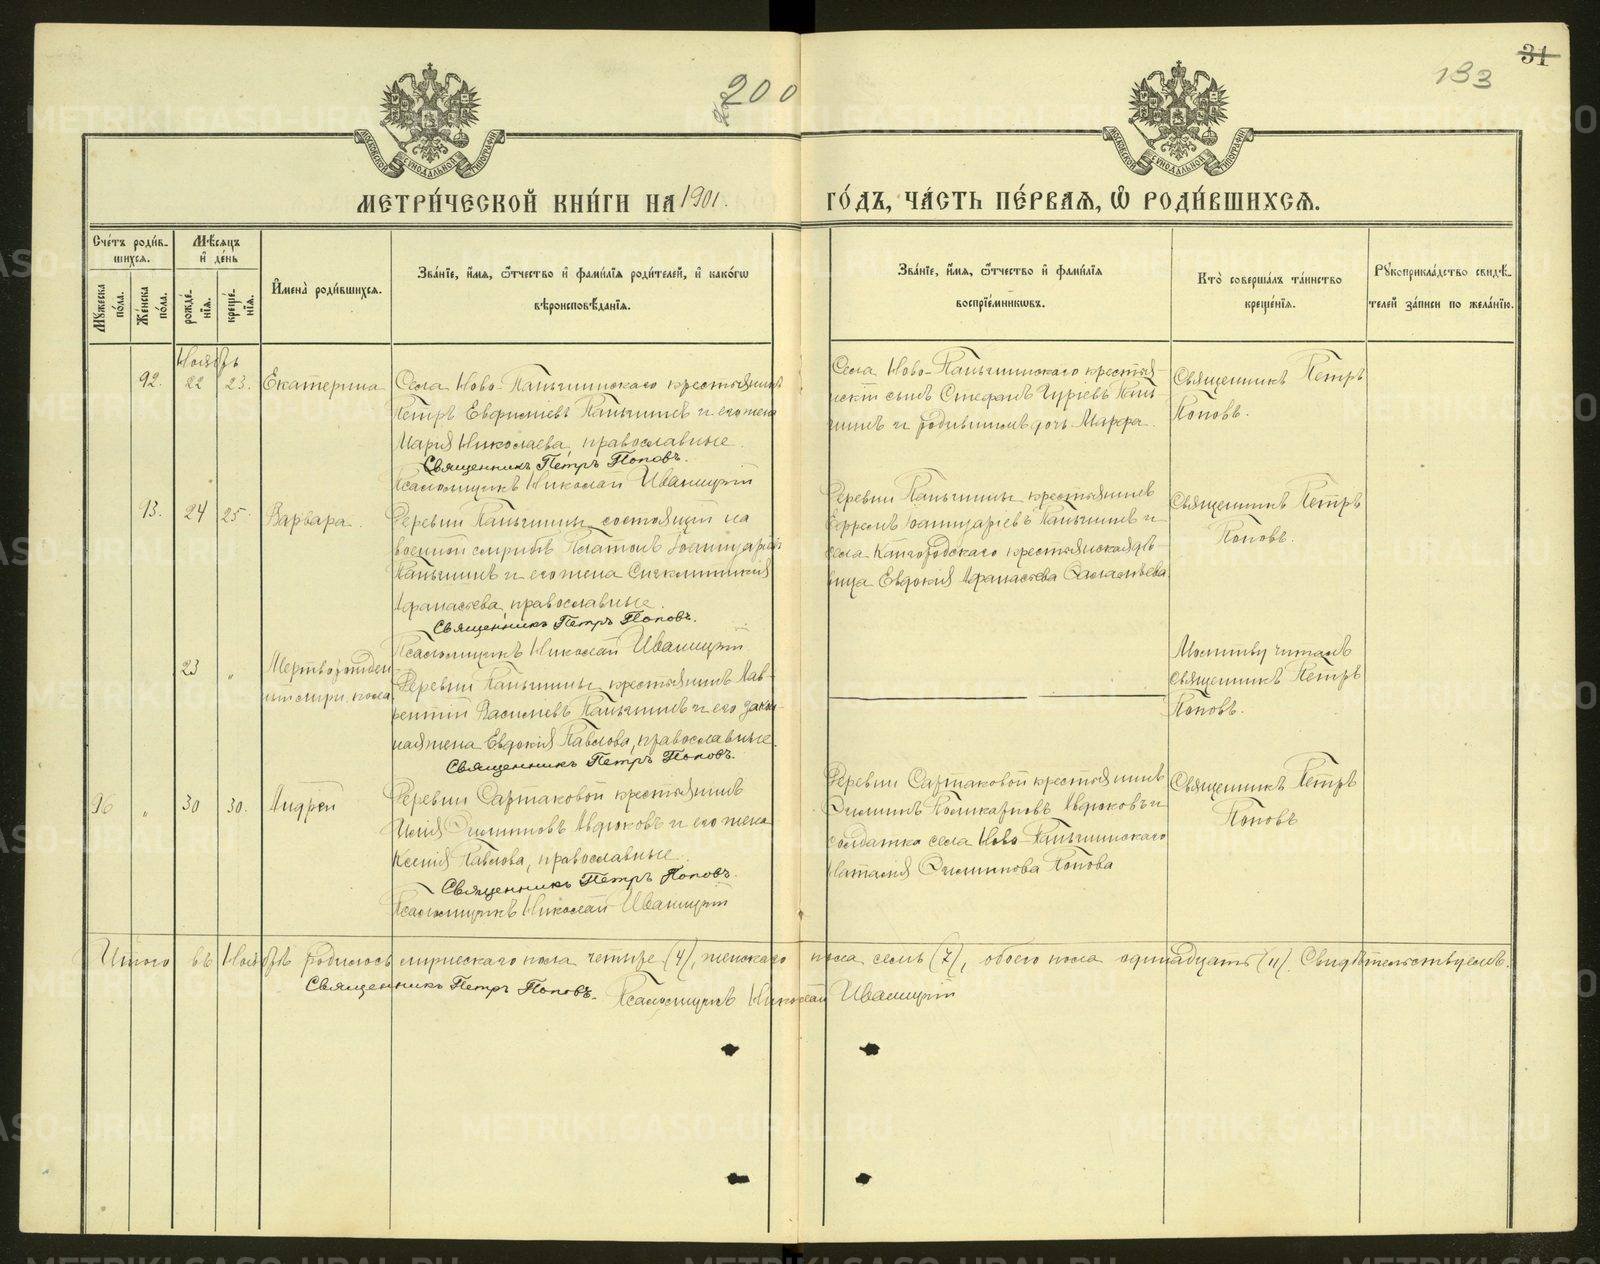 31
133
200
МОСКОВСКОЙ СѴНОДАЛЬНОЙ ТИПОГРАФІИ
МОСКОВСКОЙ СѴНОДАЛЬНОЙ ТИПОГРАФІИ
МЕТРИ́ЧЕСКОЙ КНИ́ГИ НА 1901. ГО́ДЪ, ЧА́СТЬ ПЕ́РВАѦ, Ѡ҆ РОДИ́ВШИХСѦ.
Сче́тъ роди́в-
шихсѧ.
Мꙋ́жеска по́ла.
Же́нска по́ла.
Мѣ́сѧцъ и҆ де́нь
рожде́-
нїѧ.
креще́-
нїѧ.
И҆мена̀ роди́вшихсѧ.
Зва́нїе, и҆́мѧ, ѻ҆́тчество и҆ фами́лїѧ роди́телей, и҆ како́гѡ
вѣроисповѣ́данїѧ.
Зва́нїе, и҆́мѧ, ѻ҆́тчество и҆ фами́лїѧ
воспрїе́мникѡвъ.
Кто̀ соверша́лъ та́инство
креще́нїѧ.
Рꙋкоприкла́дство свидѣ́-
телей за́писи по жела́нїю.
Ноябрь
92. 22 23. Екатерина
Села Ново-Паньшинскаго крестьянинъ
Петръ Евфиміевъ Паньшинъ и его жена
Марія Николаева, православные.
Священникъ Петръ Поповъ.
Псаломщикъ Николай Иваницкій
Села Ново-Паньшинскаго крестья-
нскій сынъ Стефанъ Гуріевъ Пань-
шинъ и родившимъ дочь Марфа.
Священникъ Петръ
Поповъ.
93. 24 25. Варвара.
Деревни Паньшины состоящій на
военной службѣ Платонъ
Паньшинъ и его жена Синклитикія
Афанасьева, православные.
Священникъ Петръ Поповъ.
Псаломщикъ Николай Иваницкій
Деревни Паньшины крестьянинъ
Ефремъ Паньшинъ и
села Кайгородскаго крестьянская дѣ-
вица Евдокія Афанасьева
Священникъ Петръ
Поповъ.
23 „ Мертворожден
пола
Деревни Паньшины крестьянинъ Лав-
рентій Василіевъ Паньшинъ и его закон-
ная жена Евдокія Павлова, православные.
Священникъ Петръ Поповъ.
Молитву читалъ
священникъ Петръ
Поповъ.
96 „ 30 30. Андрей
Деревни Сартаковой крестьянинъ
Илія Филипповъ Авдюковъ и его жена
Ксенія Павлова, православные.
Священникъ Петръ Поповъ.
Псаломщикъ Николай Иваницкій
Деревни Сартаковой крестьянинъ
Филиппъ Поликарповъ Авдюковъ и
солдатка села Ново-Паньшинскаго
Наталія Филиппова Попова
Священникъ Петръ
Поповъ
Итого въ Ноябрѣ родилось мужескаго пола четыре (4), женскаго пола семь (7), обоего пола одинадцать (11). Свидѣтельствуемъ.
Священникъ Петръ Поповъ. Псаломщикъ Николай Иваницкій
METRIKI.GASO-URAL.RU